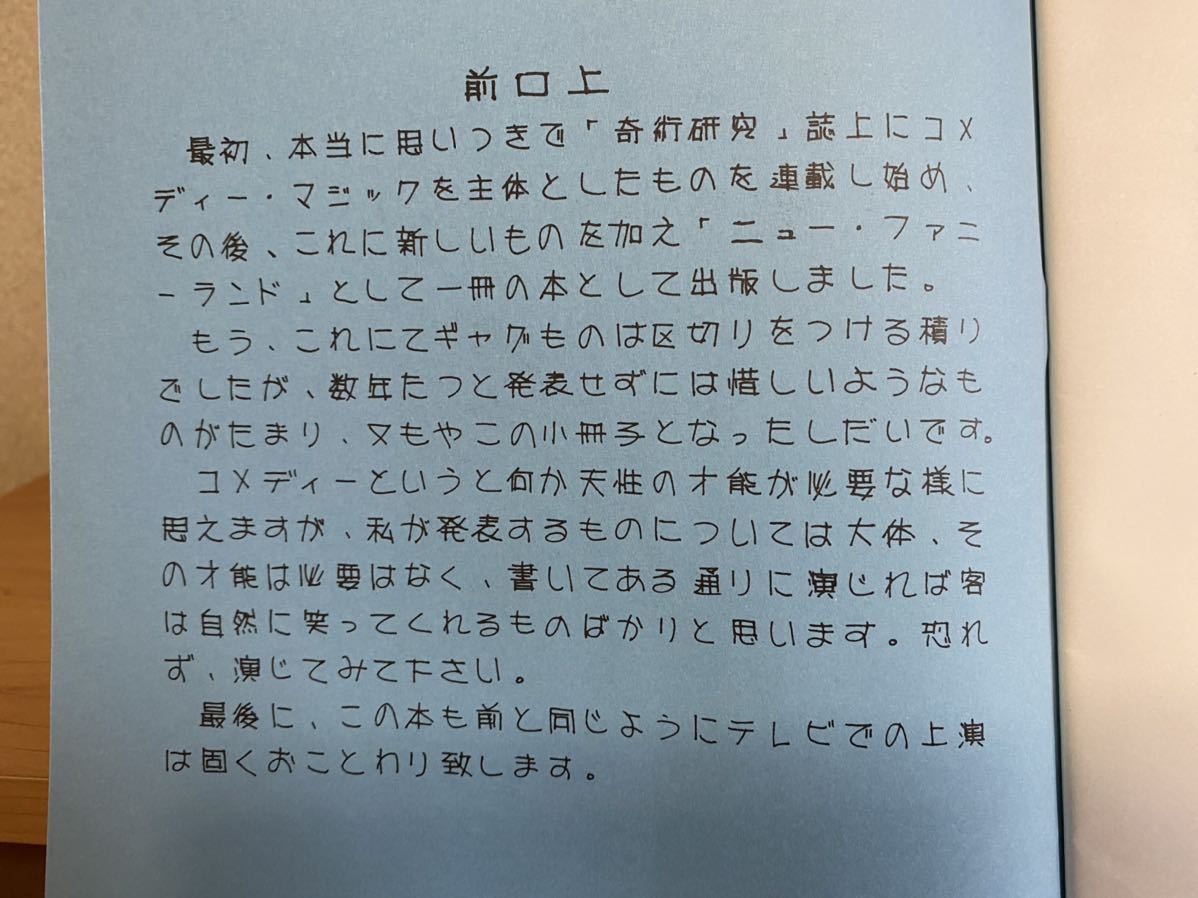 前口上
最初、本当に思いつきで「奇術研究」誌上にコメ
ディー・マジックを主体としたものを連載し始め、
その後、これに新しいものを加え「ニュー・ファニ
ーランド」として一冊の本として出版しました。
もう、これにてギャグものは区切りをつける積り
でしたが、数年たつと発表せずには惜しいようなも
のがたまり、又もやこの小冊子となったしだいです。
コメディーというと何か天性の才能が必要な様に
思えますが、私が発表するものについては大体、そ
の才能は必要はなく、書いてある通りに演じれば客
は自然に笑ってくれるものばかりと思います。恐れ
ず、演じてみて下さい。
最後に、この本も前と同じようにテレビでの上演
は固くおことわり致します。